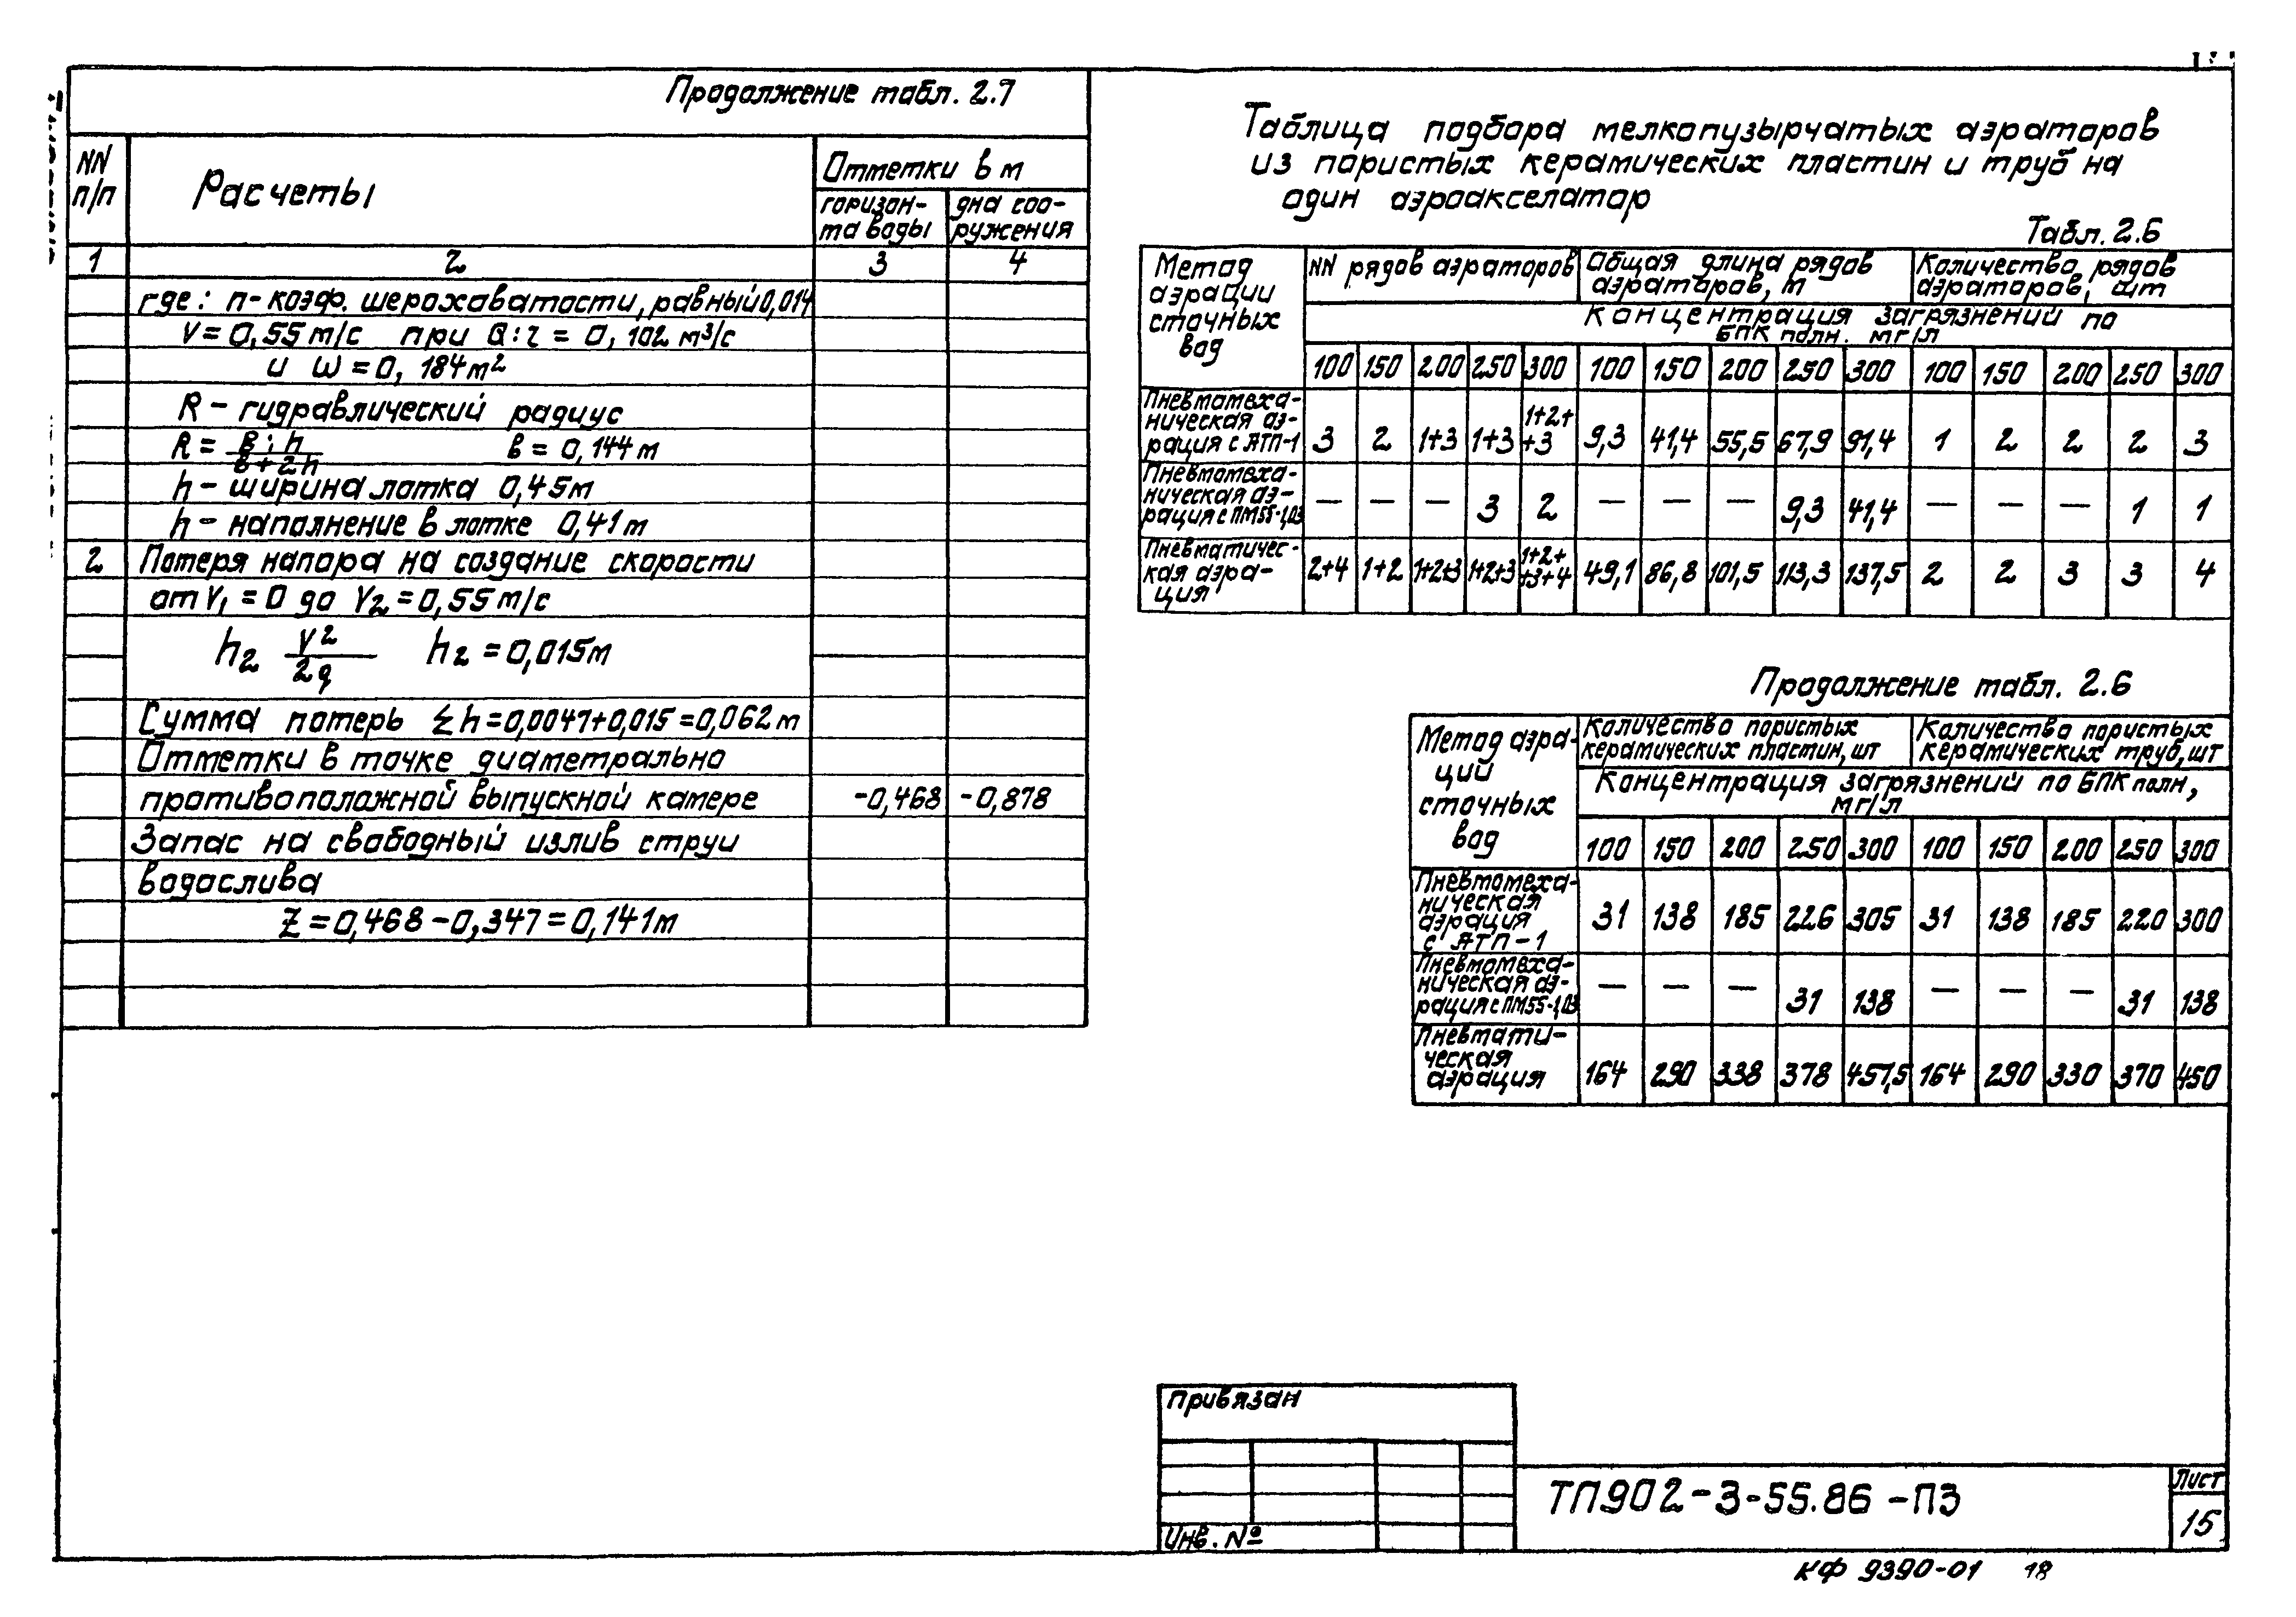 Продолжение табл. 2.7
NN п/п
Расчеты
Отметки в м
горизон-
та воды
дна соо-
ружения
1 2 3 4
где: n - коэф. шероховатости, равный 0,014
V = 0,55 м/с при Q:2 = 0,102 м³/с
и ω = 0,184 м²
R - гидравлический радиус
R = В:h / в+2h в = 0,144 м
h - ширина лотка 0,45 м
h - наполнение в лотке 0,41 м
2 Потеря напора на создание скорости
от V₁ = 0 до V₂ = 0,55 м/с
h₂ V²/2g h₂ = 0,015 м
Сумма потерь Σh = 0,0047+0,015 = 0,062 м
Отметки в точке диаметрально
противоположной выпускной камере -0,468 -0,878
Запас на свободный излив струи
водослива
Z = 0,468 - 0,347 = 0,141 м
Таблица подбора мелкопузырчатых аэраторов
из пористых керамических пластин и труб на
один аэроакселатор
Табл. 2.6
Метод
аэрации
сточных
вод
NN рядов аэраторов
Общая длина рядов
аэраторов, м
Количество рядов
аэраторов, шт
Концентрация загрязнений по
БПК полн. мг/л
100 150 200 250 300 100 150 200 250 300 100 150 200 250 300
Пневмомеха-
ническая аэ-
рация с АТП-1
3 2 1+3 1+3 1+2+ +3 9,3 41,4 55,5 67,9 91,4 1 2 2 2 3
Пневмомеха-
ническая аэ-
рация с ПМ55-1,03
— — — 3 2 — — — 9,3 41,4 — — — 1 1
Пневматичес-
кая аэра-
ция
2+4 1+2 1+2+3 1+2+3 1+2+ +3+4 49,1 86,8 101,5 113,3 137,5 2 2 3 3 4
Продолжение табл. 2.6
Метод аэра-
ции
сточных
вод
Количество пористых
керамических пластин, шт
Количество пористых
керамических труб, шт
Концентрация загрязнений по БПК полн,
мг/л
100 150 200 250 300 100 150 200 250 300
Пневмомеха-
ническая
аэрация
с АТП-1
31 138 185 226 305 31 138 185 220 300
Пневмомеха-
ническая аэ-
рация с ПМ55-1,03
— — — 31 138 — — — 31 138
Пневмати-
ческая
аэрация
164 290 338 378 457,5 164 290 330 370 450
Привязан
Инв. №
ТП 902-3-55.86 -ПЗ
Лист
15
КФ 9390-01 18